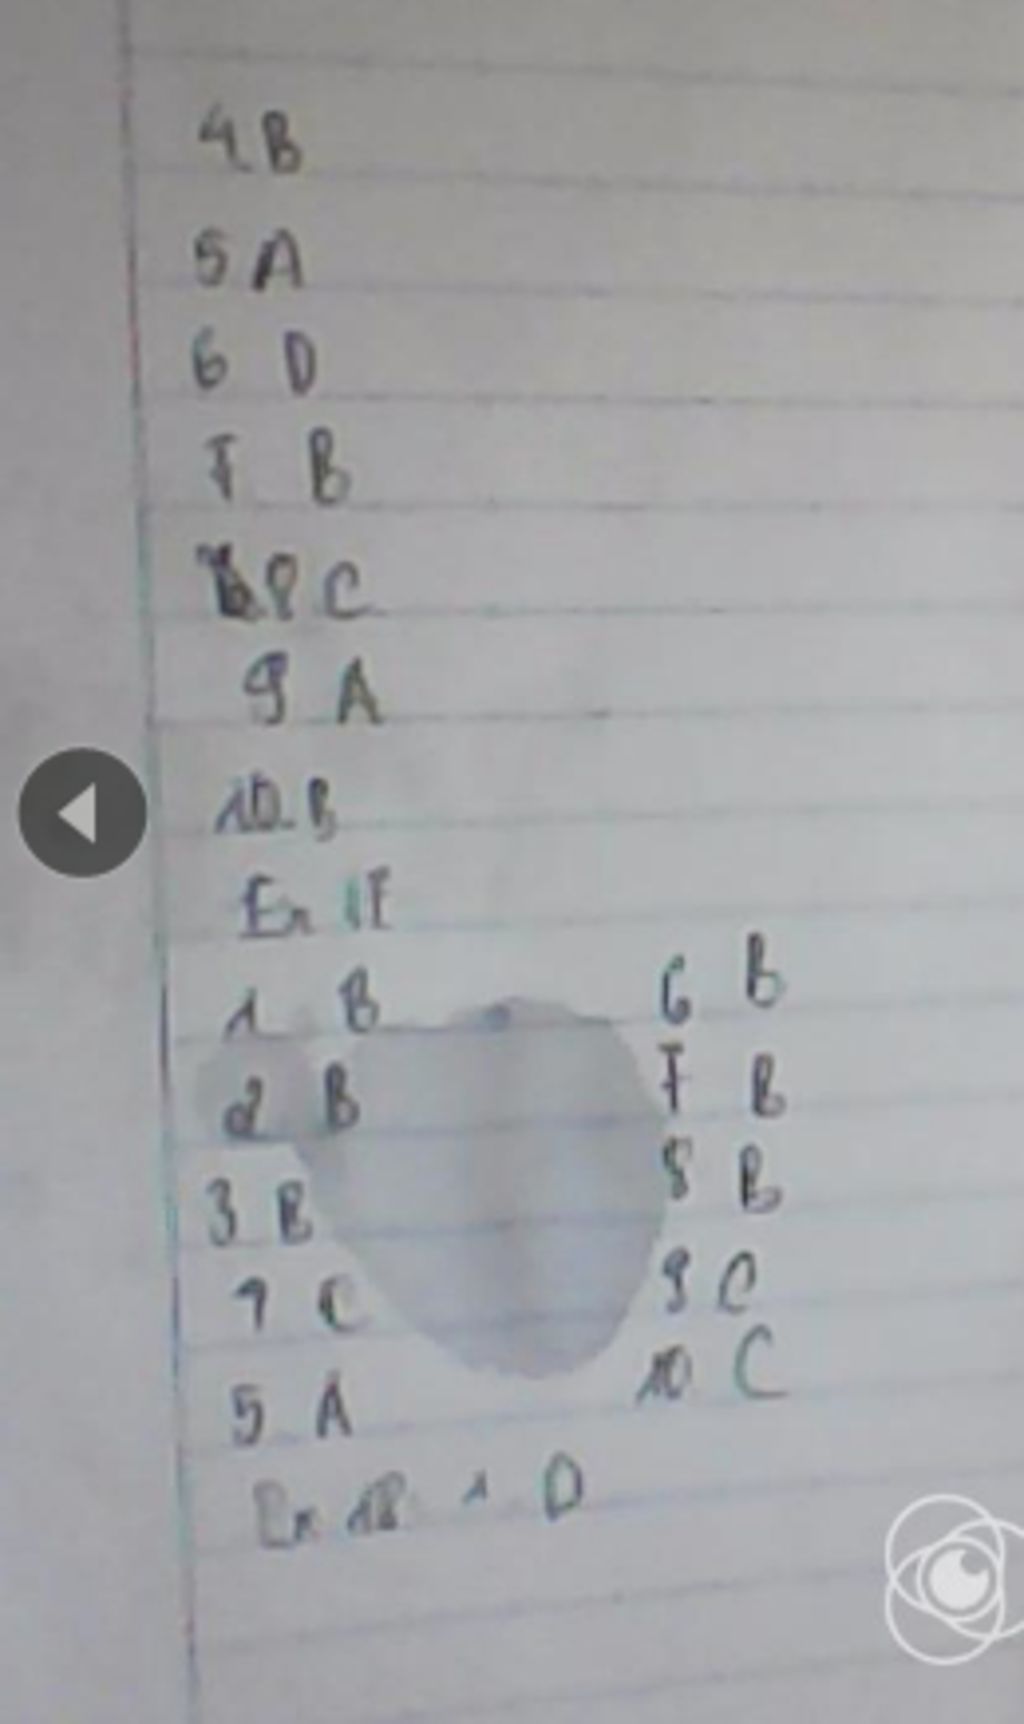 4 B
5 A
6 D
7 B
8 C
9 A
10 B
Ex 17
1 B
2 B
3 B
4 C
5 A
6 B
7 B
8 B
9 C
10 C
Ex 18 1 D